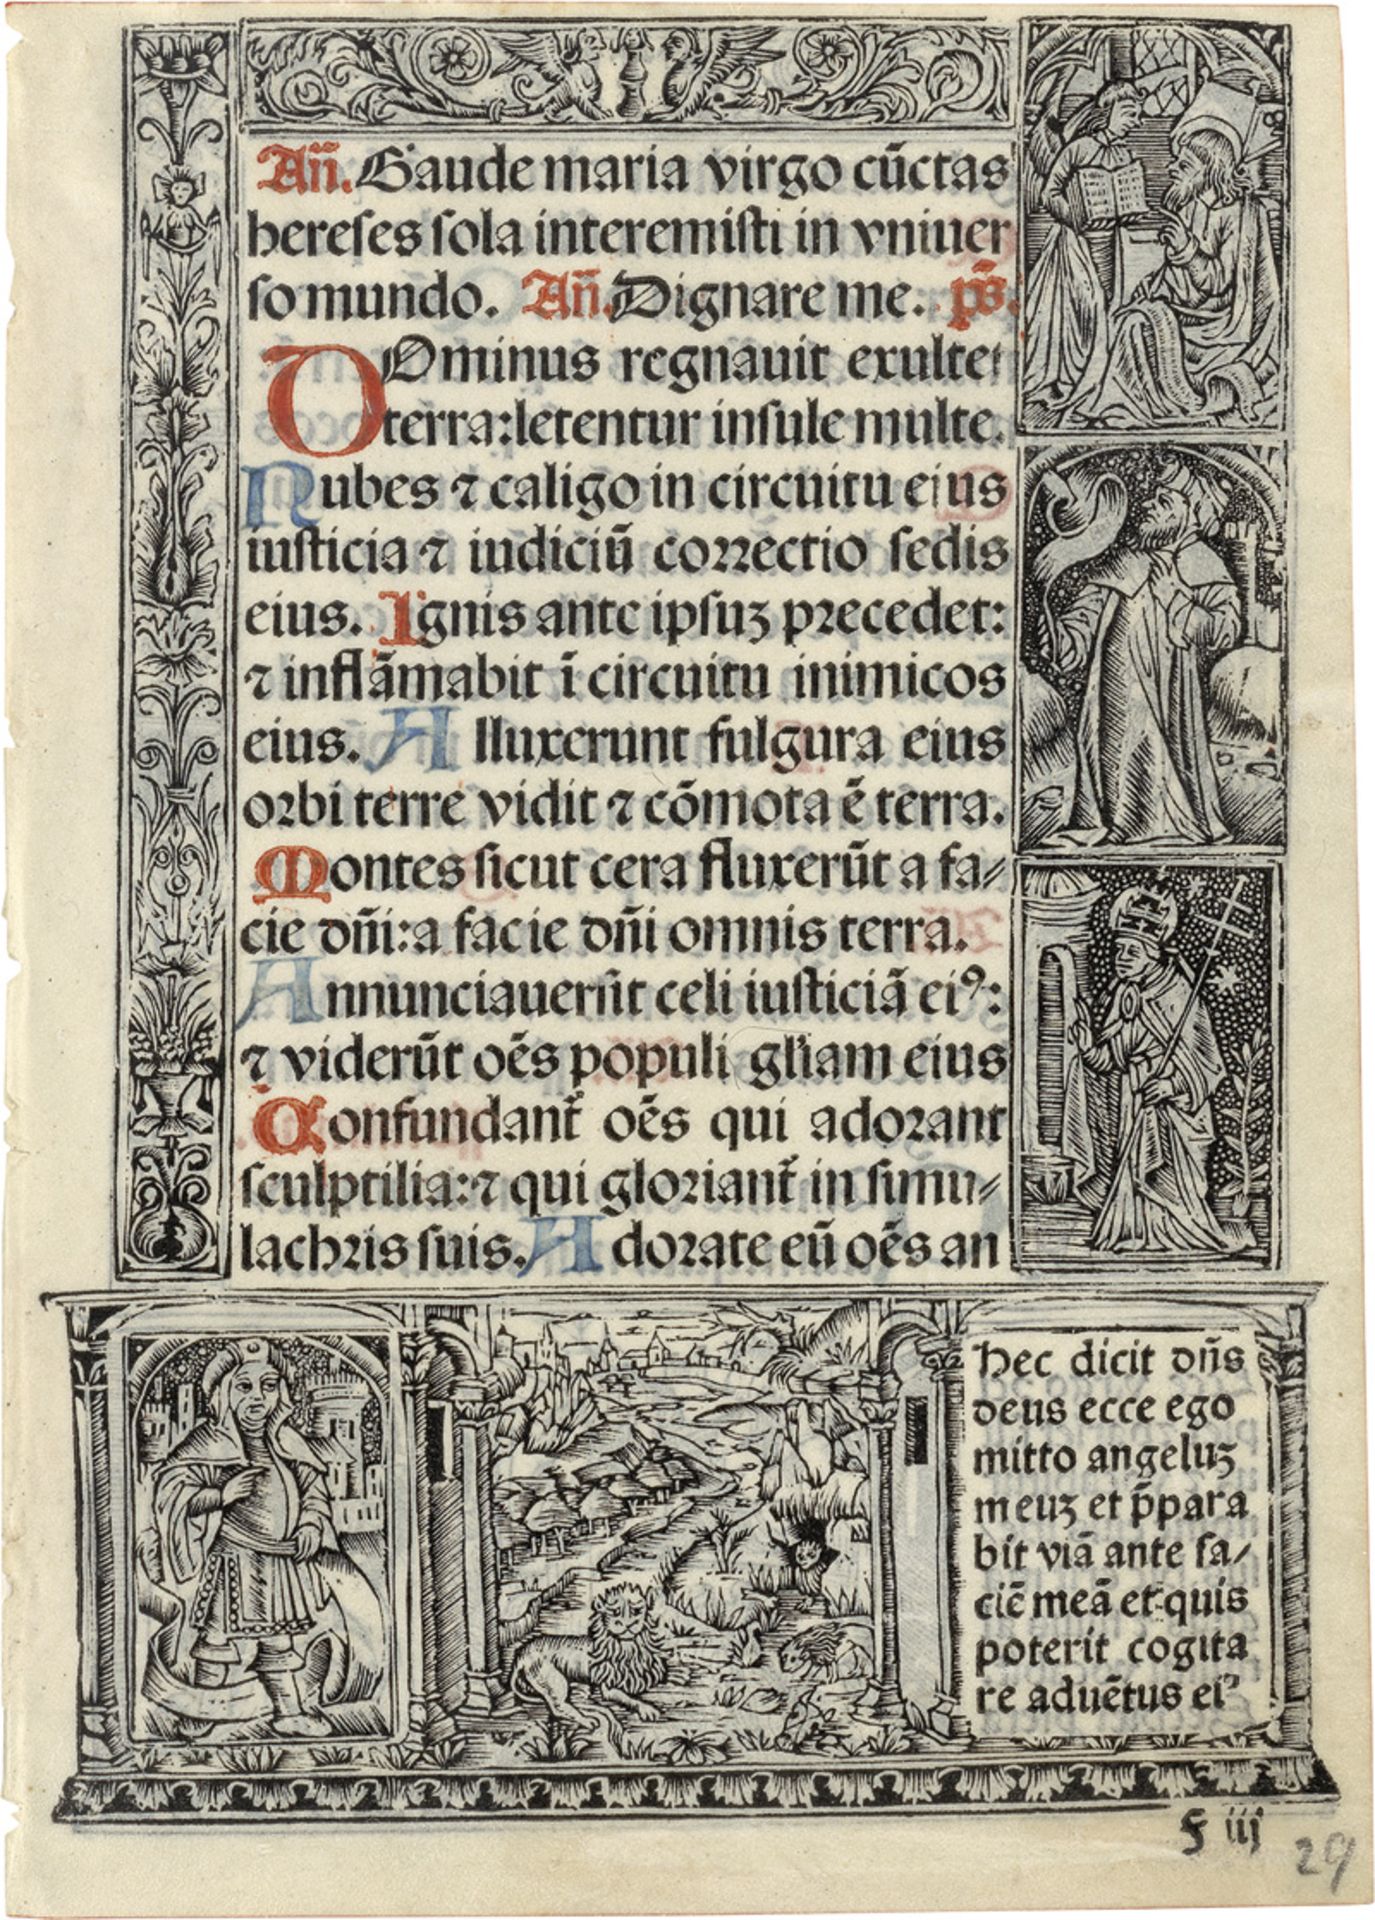 Añ. Gaude maria virgo cūctas
hereſes ſola interemiſti in vniuer
ſo mundo. Añ. Dignare me. p̄s.
DOminus regnauit exultet
terra: letentur inſule multe.
Nubes ⁊ caligo in circuitu eius
iuſticia ⁊ iudiciū correctio ſedis
eius. Ignis ante ipſuʒ precedet:
⁊ inflāmabit ī circuitu inimicos
eius. Alluxerunt fulgura eius
orbi terre vidit ⁊ cōmota ē terra.
Montes ſicut cera fluxerūt a fa⸗
cie dn̄i: a facie dn̄i omnis terra.
Annunciauerūt celi iuſticiā eiꝰ:
⁊ viderūt oēs populi gl̄iam eius
Confundant̄ oēs qui adorant
ſculptilia: ⁊ qui gloriant̄ in ſimu⸗
lachris ſuis. Adorate eū oēs an
Hec dicit dn̄s
deus ecce ego
mitto angeluʒ
meuʒ et p̄para
bit viā ante fa⸗
ciē meā et quis
poterit cogita
re aduētus eiꝰ
f iij
29